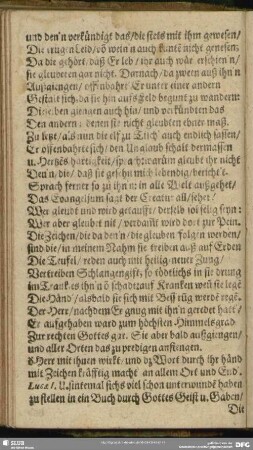 und den'n verkündigt das/die stets mit ihm gewesen/
Die trugn Leid/ vō wein'n auch kuntē nicht genesen.
Da die gehört/daß Er leb/ ihr auch wär erschien n/
sie gleubten gar nicht. Darnach/da zween auß ihn'n
Außgiengen/ offnbahrt Er unter einer andern
Gestalt sich/da sie hin auffs Feld begunt zu wandern
Dieselben giengen auch hin/ und verkündten das
Den andern: denen sie nicht gleubten ehner maß.
Zu letzt/als nun die elff zu Tisch auch endlich sassen/
Er offenbahret sich/ den Unglaub schalt dermassen
u. Hertzēs hartigkeit/ sprach: warüm gleubt ihr nicht
Den'n/ die/ daß sie gesehn mich lebendig/ bericht't.
Sprach ferner so zu ihn'n: in alle Welt außgehet/
Das Evangelium sagt der Creatur all/sehet!
Wer gleubt und wird getaufft/ derselb sol selig seyn:
Wer aber gleubt nit/ verdamt wird dort zur Pein.
Die Zeichen/ die da den'n/ die gleuben/ folgn werden/
sind die/ in meinem Nahm sie treiben auß auf Erden
Die Teufel/ reden auch mit heilig-neuer Zung/
Vertreiben Schlangengift/ so tödtlichs in sie drung
im Tranck es ihn'n ō schadt: auf Krancken wen sie legē
Die Händ/ alsbald sie sich mit Bessrūg werdē regē.
Der Herr/ nachdem Er gnug mit ihn'n geredet hatt/
Er aufgehaben ward zum höchsten Himmelsgrad
Zur rechten Gottes gar. Sie aber bald außgiengen/
und aller Orten das zu predigen anfiengen.
d' Herr mit ihnen wirkt/ und dz Wort durch ihr händ
mit Zeichen kräfftig macht an allem Ort und End.
Lucæ I. U. sintemal sichs viel schon unterwundē haben
zu stellen in ein Buch durch Gottes Geist u. Gaben/
Die
SLUB
DFG